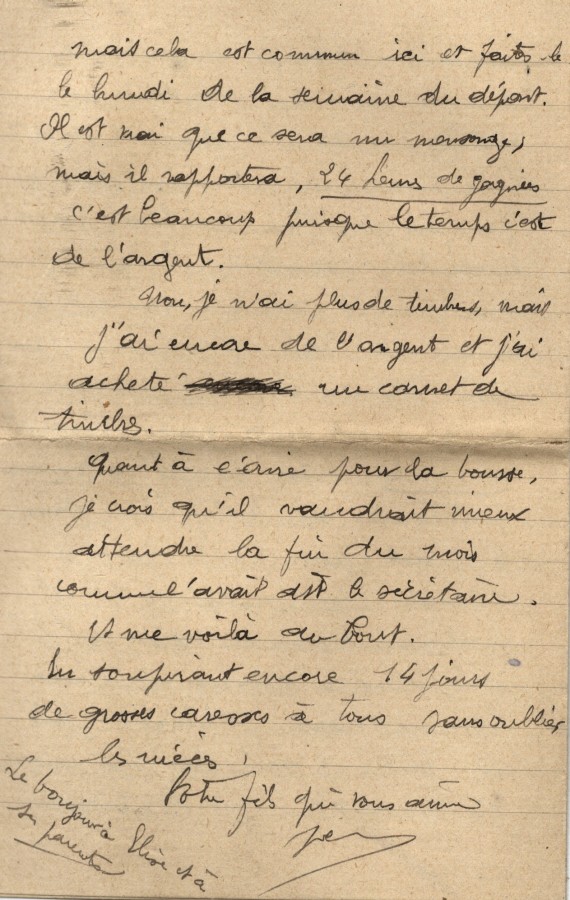 mais cela est commun ici et faites le
le lundi de la semaine du départ.
Il est vrai que ce sera un mensonge,
mais il rapportera, 24 heures de gagnées
c'est beaucoup puisque le temps c'est
de l'argent.
Non, je n'ai plus de timbres, mais
j'ai encore de l'argent et j'ai
acheté un carnet de
timbres.
Quant à écrire pour la bourse,
je crois qu'il vaudrait mieux
attendre la fin du mois
comme l'avait dit le secrétaire.
Et me voilà au bout.
En soupirant encore 14 jours
de grosses caresses à tous sans oublier
les nièces,
Votre fils qui vous aime
Le bonjour à Elise et à
ses parents